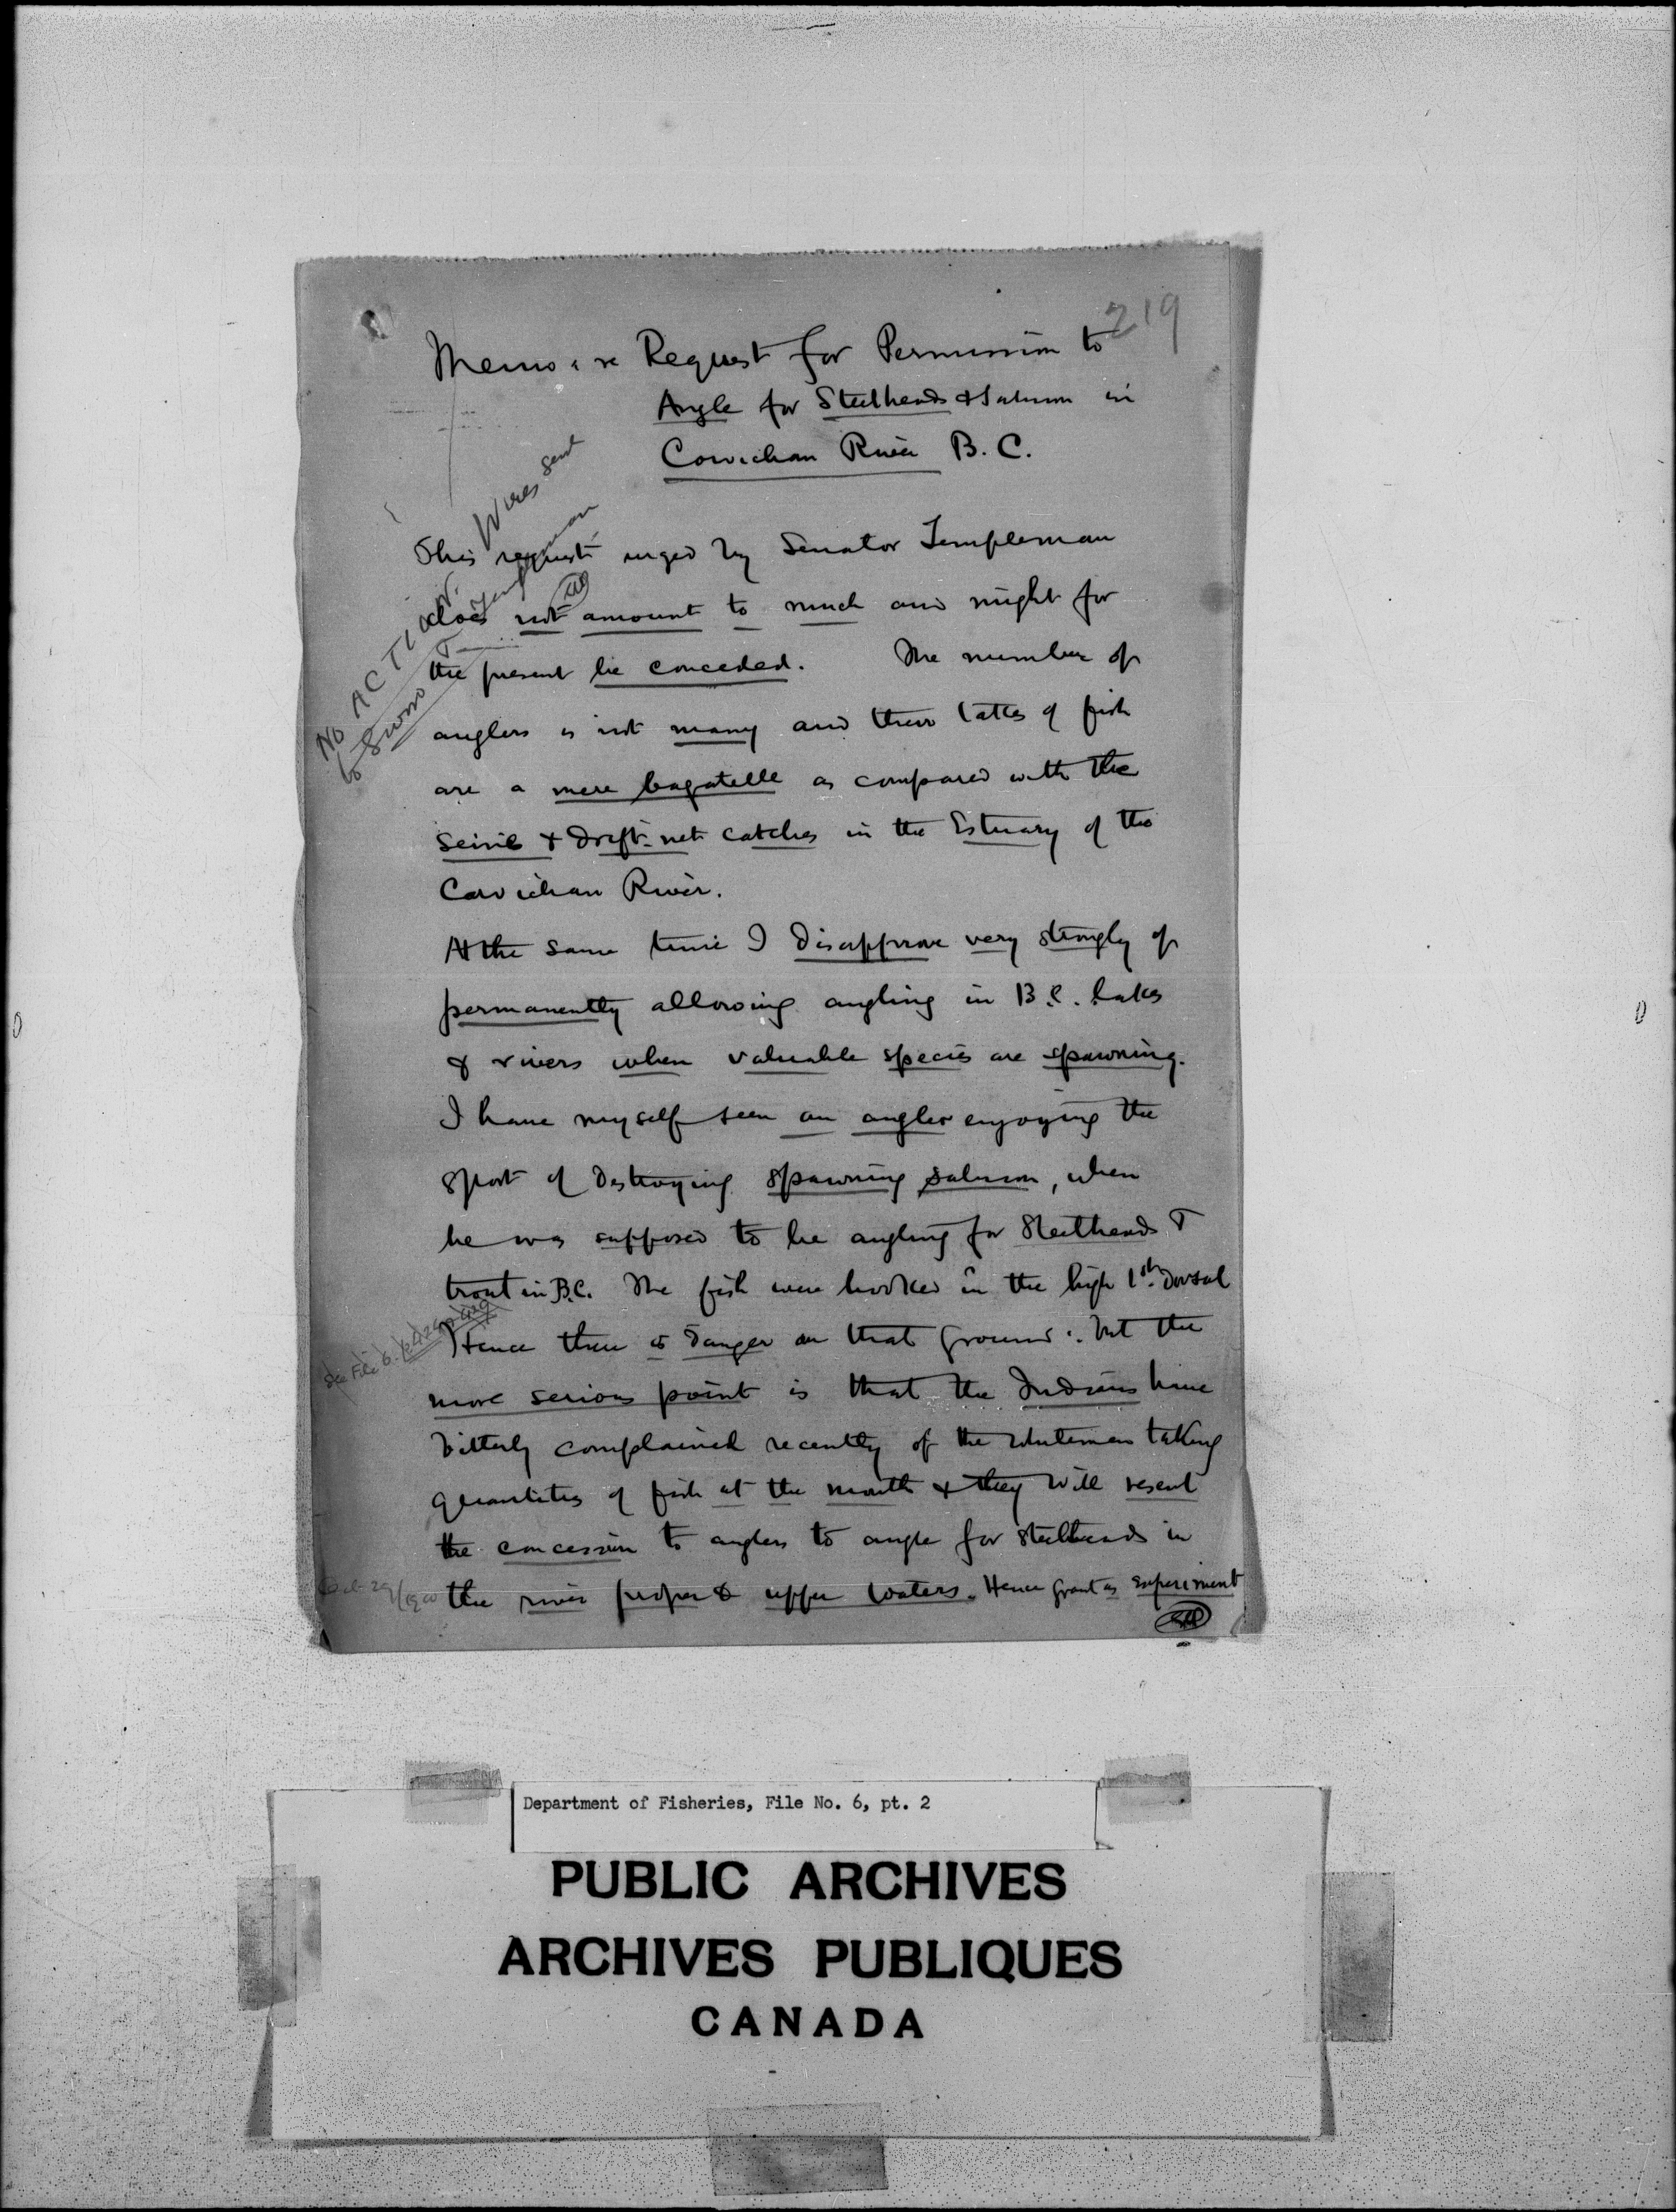 219
Memo: re Request for Permission to
Angle for Steelheads & Salmon in
Cowichan River B.C.
Wires sent
to Sword & Templeman
NO ACTION.
This request urged by Senator Templeman
does not amount to much and might for
the present be conceded. The number of
anglers is not many and their takes of fish
are a mere bagatelle as compared with the
seine & drift-net catches in the Estuary of the
Cowichan River.
At the same time I disapprove very strongly of
permanently allowing angling in B.C. lakes
& rivers when valuable species are spawning.
I have myself seen an angler enjoying the
sport of destroying spawning salmon, when
he was supposed to be angling for Steelheads &
trout in B.C. The fish were hooked in the high 1st dorsal
See File 6.
Hence there is danger on that ground: but the
more serious point is that the Indians have
bitterly complained recently of the whitemen taking
quantities of fish at the mouth & they will resent
the concession to anglers to angle for steelheads in
the river proper & upper waters. Hence grant as experiment
29/1900
Department of Fisheries, File No. 6, pt. 2
PUBLIC ARCHIVES
ARCHIVES PUBLIQUES
CANADA